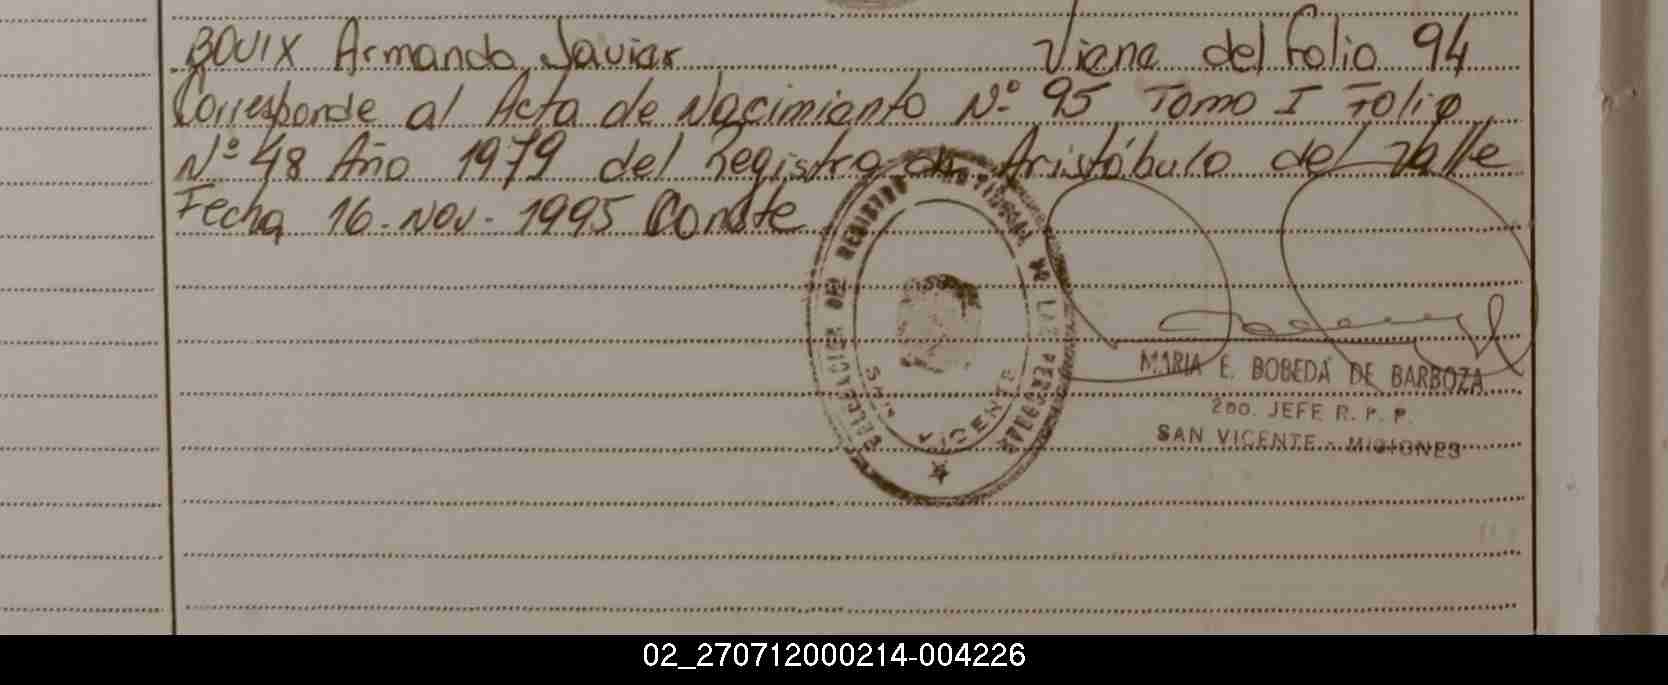 BOUIX Armando Javier Viene del folio 94
Corresponde al Acta de Nacimiento Nº 95 Tomo I Folio
Nº 48 Año 1979 del Registro de Aristóbulo del Valle
Fecha 16-Nov-1995 Conste
DELEGACION DEL REGISTRO PROVINCIAL DE LAS PERSONAS
SAN VICENTE
MARIA E. BOBEDA DE BARBOZA
2DO. JEFE R. P. P.
SAN VICENTE - MISIONES
02_270712000214-004226